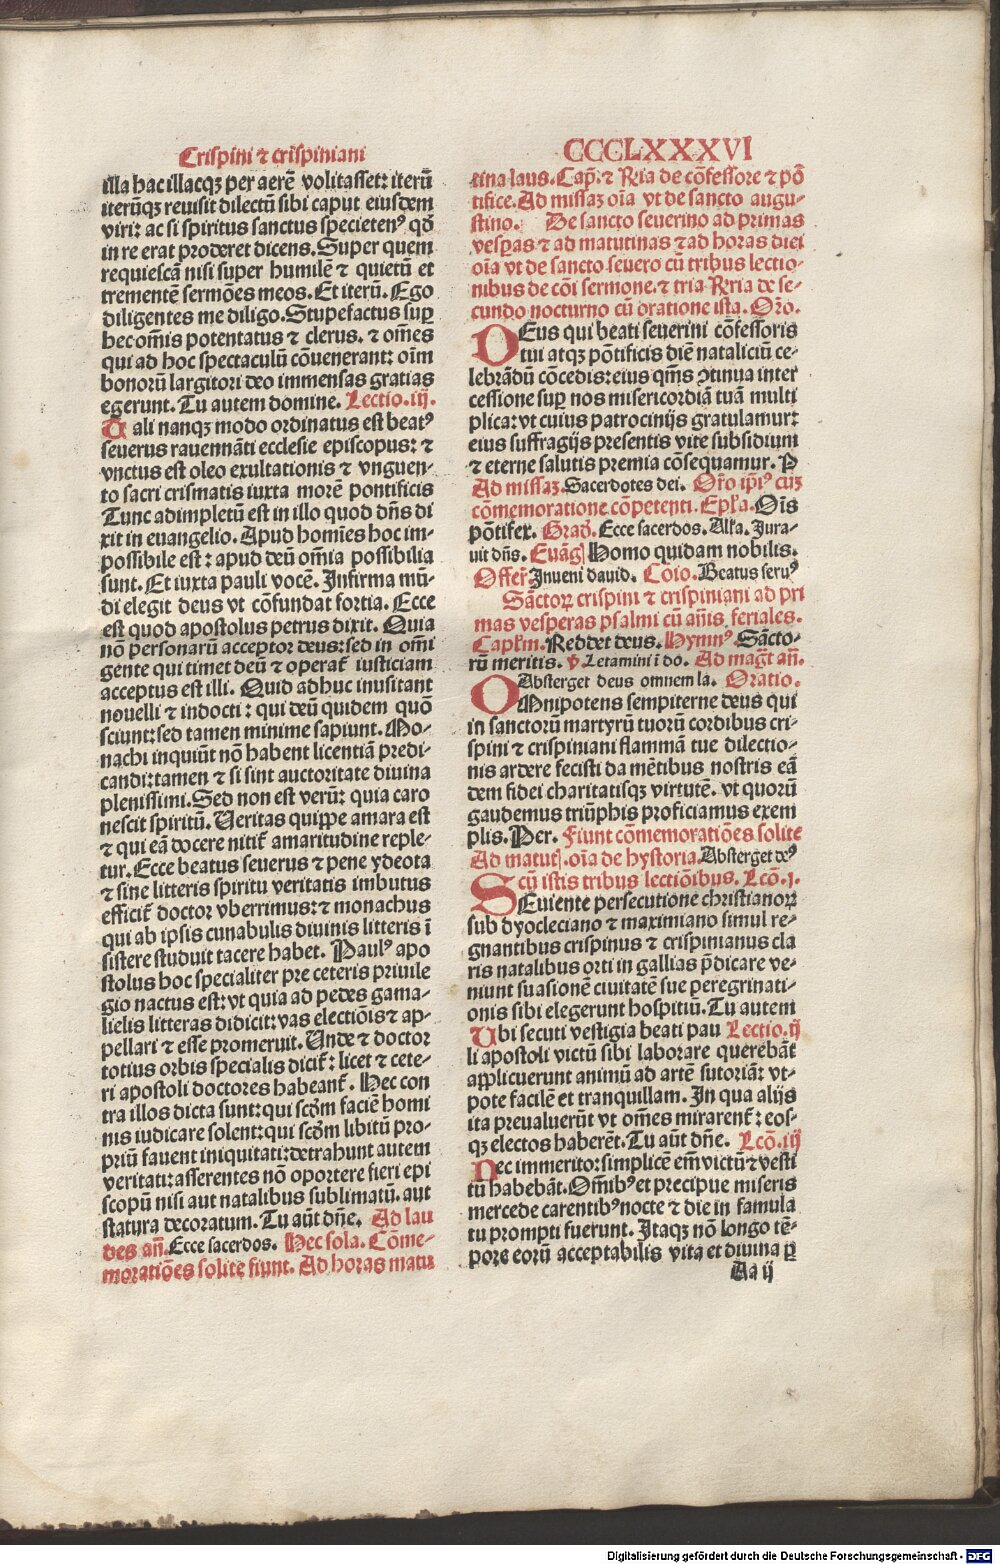 Crispini ⁊ crispiniani
illa hac illacqꝫ per aerē volitasset: iterū
iterūqꝫ reuisit dilectū sibi caput eiusdem
viri: ac si spiritus sanctus specietenꝰ qđ
in re erat proderet dicens. Super quem
requiescā nisi super humilē ⁊ quietū et
trementē sermōes meos. Et iterū. Ego
diligentes me diligo. Stupefactus suꝑ
hec omīs potentatus ⁊ clerus. ⁊ omēs
qui ad hoc spectaculū cōuenerant: oīm
bonorū largitori deo immensas gratias
egerunt. Tu autem domine. Lectio. iij.
Tali nanqꝫ modo ordinatus est beatꝰ
seuerus rauennāti ecclesie episcopus: ⁊
vnctus est oleo exultationis ⁊ vnguen-
to sacri crismatis iuxta morē pontificis
Tunc adimpletū est in illo quod dn̄s di
xit in euangelio. Apud homīes hoc im-
possibile est: apud deū om̄ia possibilia
sunt. Et iuxta pauli vocē. Infirma mū-
di elegit deus vt cōfundat fortia. Ecce
est quod apostolus petrus dixit. Quia
nō personarū acceptor deus: sed in om̄i
gente qui timet deū ⁊ operat̄ iusticiam
acceptus est illi. Quid adhuc inusitant
nouelli ⁊ indocti: qui deū quidem quō
sciunt: sed tamen minime sapiunt. Mo-
nachi inquiūt nō habent licentiā predi-
candi: tamen ⁊ si sint auctoritate diuina
plenissimi. Sed non est verū: quia caro
nescit spiritū. Veritas quippe amara est
⁊ qui eā docere nitit̄ amaritudine reple-
tur. Ecce beatus seuerus ⁊ pene ydeota
⁊ sine litteris spiritu veritatis imbutus
efficit̄ doctor vberrimus: ⁊ monachus
qui ab ipsis cunabulis diuinis litteris ī
sistere studuit tacere habet. Paulꝰ apo
stolus hoc specialiter pre ceteris priuile
gio nactus est: vt quia ad pedes gama-
lielis litteras didicit: vas electiōis ⁊ ap-
pellari ⁊ esse promeruit. Vnde ⁊ doctor
totius orbis specialis dicit̄: licet ⁊ cete-
ri apostoli doctores habeant̄. Hec con
tra illos dicta sunt: qui scđm faciē homi
nis iudicare solent: qui scđm libitū pro-
priū fauent iniquitati: detrahunt autem
veritati: asserentes nō oportere fieri epi
scopū nisi aut natalibus sublimatū. aut
statura decoratum. Tu aūt dn̄e. Ad lau
des an̄. Ecce sacerdos. Hec sola. Cōme-
morationēs solite fiunt. Ad horas matu
CCCCLXXXVI
tina laus. Cap̄. ⁊ Rr̄ia de cōfessore ⁊ pō
tifice. Ad missaꝫ oīa vt de sancto augu-
stino. De sancto seuerino ad primas
vesꝑas ⁊ ad matutinas ⁊ ad horas diei
oīa vt de sancto seuero cū tribus lectio-
nibus de cōi sermone. ⁊ tria Rr̄ia de se-
cundo nocturno cū oratione ista. Or̄o.
DEus qui beati seuerini cōfessoris
tui atqꝫ pōtificis diē nataliciū ce-
lebrādū cōcedis: eius qm̄s ꝯtinua inter
cessione suꝑ nos misericordiā tuā multi
plica: vt cuius patrocinijs gratulamur:
eius suffragijs presentis vite subsidium
⁊ eterne salutis premia cōsequamur. P
Ad missaꝫ. Sacerdotes dei. Or̄o ip̄iꝰ cuꝫ
cōmemoratione cōpetenti. Epl̄a. Oīs
pōtifex. Grad̄. Ecce sacerdos. All̄a. Jura-
uit dn̄s. Euāḡ Homo quidam nobilis.
Offer̄ Inueni dauid. Cōio. Beatus seruꝰ
Sāctoꝝ crispini ⁊ crispiniani ad pri
mas vesperas psalmi cū an̄is feriales.
Capl̄m. Reddet deus. Hymnꝰ Sācto-
rū meritis. ℣ Letamini ī do. Ad maḡt an̄.
Absterget deus omnem la. Oratio.
OMnipotens sempiterne deus qui
in sanctorū martyrū tuorū cordibus cri-
spini ⁊ crispiniani flammā tue dilectio-
nis ardere fecisti da mētibus nostris eā
dem fidei charitatisqꝫ virtutē. vt quorū
gaudemus triūphis proficiamus exem
plis. Per. Fiunt cōmemoratiōes solite
Ad matut̄. oīa de hystoria. Absterget deꝰ
cū istis tribus lectiōibus. Lcō. j.
SEuiente persecutione christianoꝝ
sub dyocleciano ⁊ maximiano simul re-
gnantibus crispinus ⁊ crispinianus cla
ris natalibus orti in gallias p̄dicare ve-
niunt suasionē ciuitatē sue peregrinati-
onis sibi elegerunt hospitiū. Tu autem
Vbi secuti vestigia beati pau Lectio. ij
li apostoli victū sibi laborare querebāt
applicuerunt animū ad artē sutoriā: vt-
pote facilē et tranquillam. In qua alijs
ita preualuerūt vt omēs mirarent̄: eos-
qꝫ electos haberēt. Tu aūt dn̄e. Lcō. iij
Nec immerito: simplicē em̄ victū ⁊ vesti
tū habebāt. Om̄ibꝰ et precipue miseris
mercede carentibꝰ nocte ⁊ die in famula
tu prompti fuerunt. Itaqꝫ nō longo tē-
pore eorū acceptabilis vita et diuina ꝑ
Aa ij
Digitalisierung gefördert durch die Deutsche Forschungsgemeinschaft - DFG